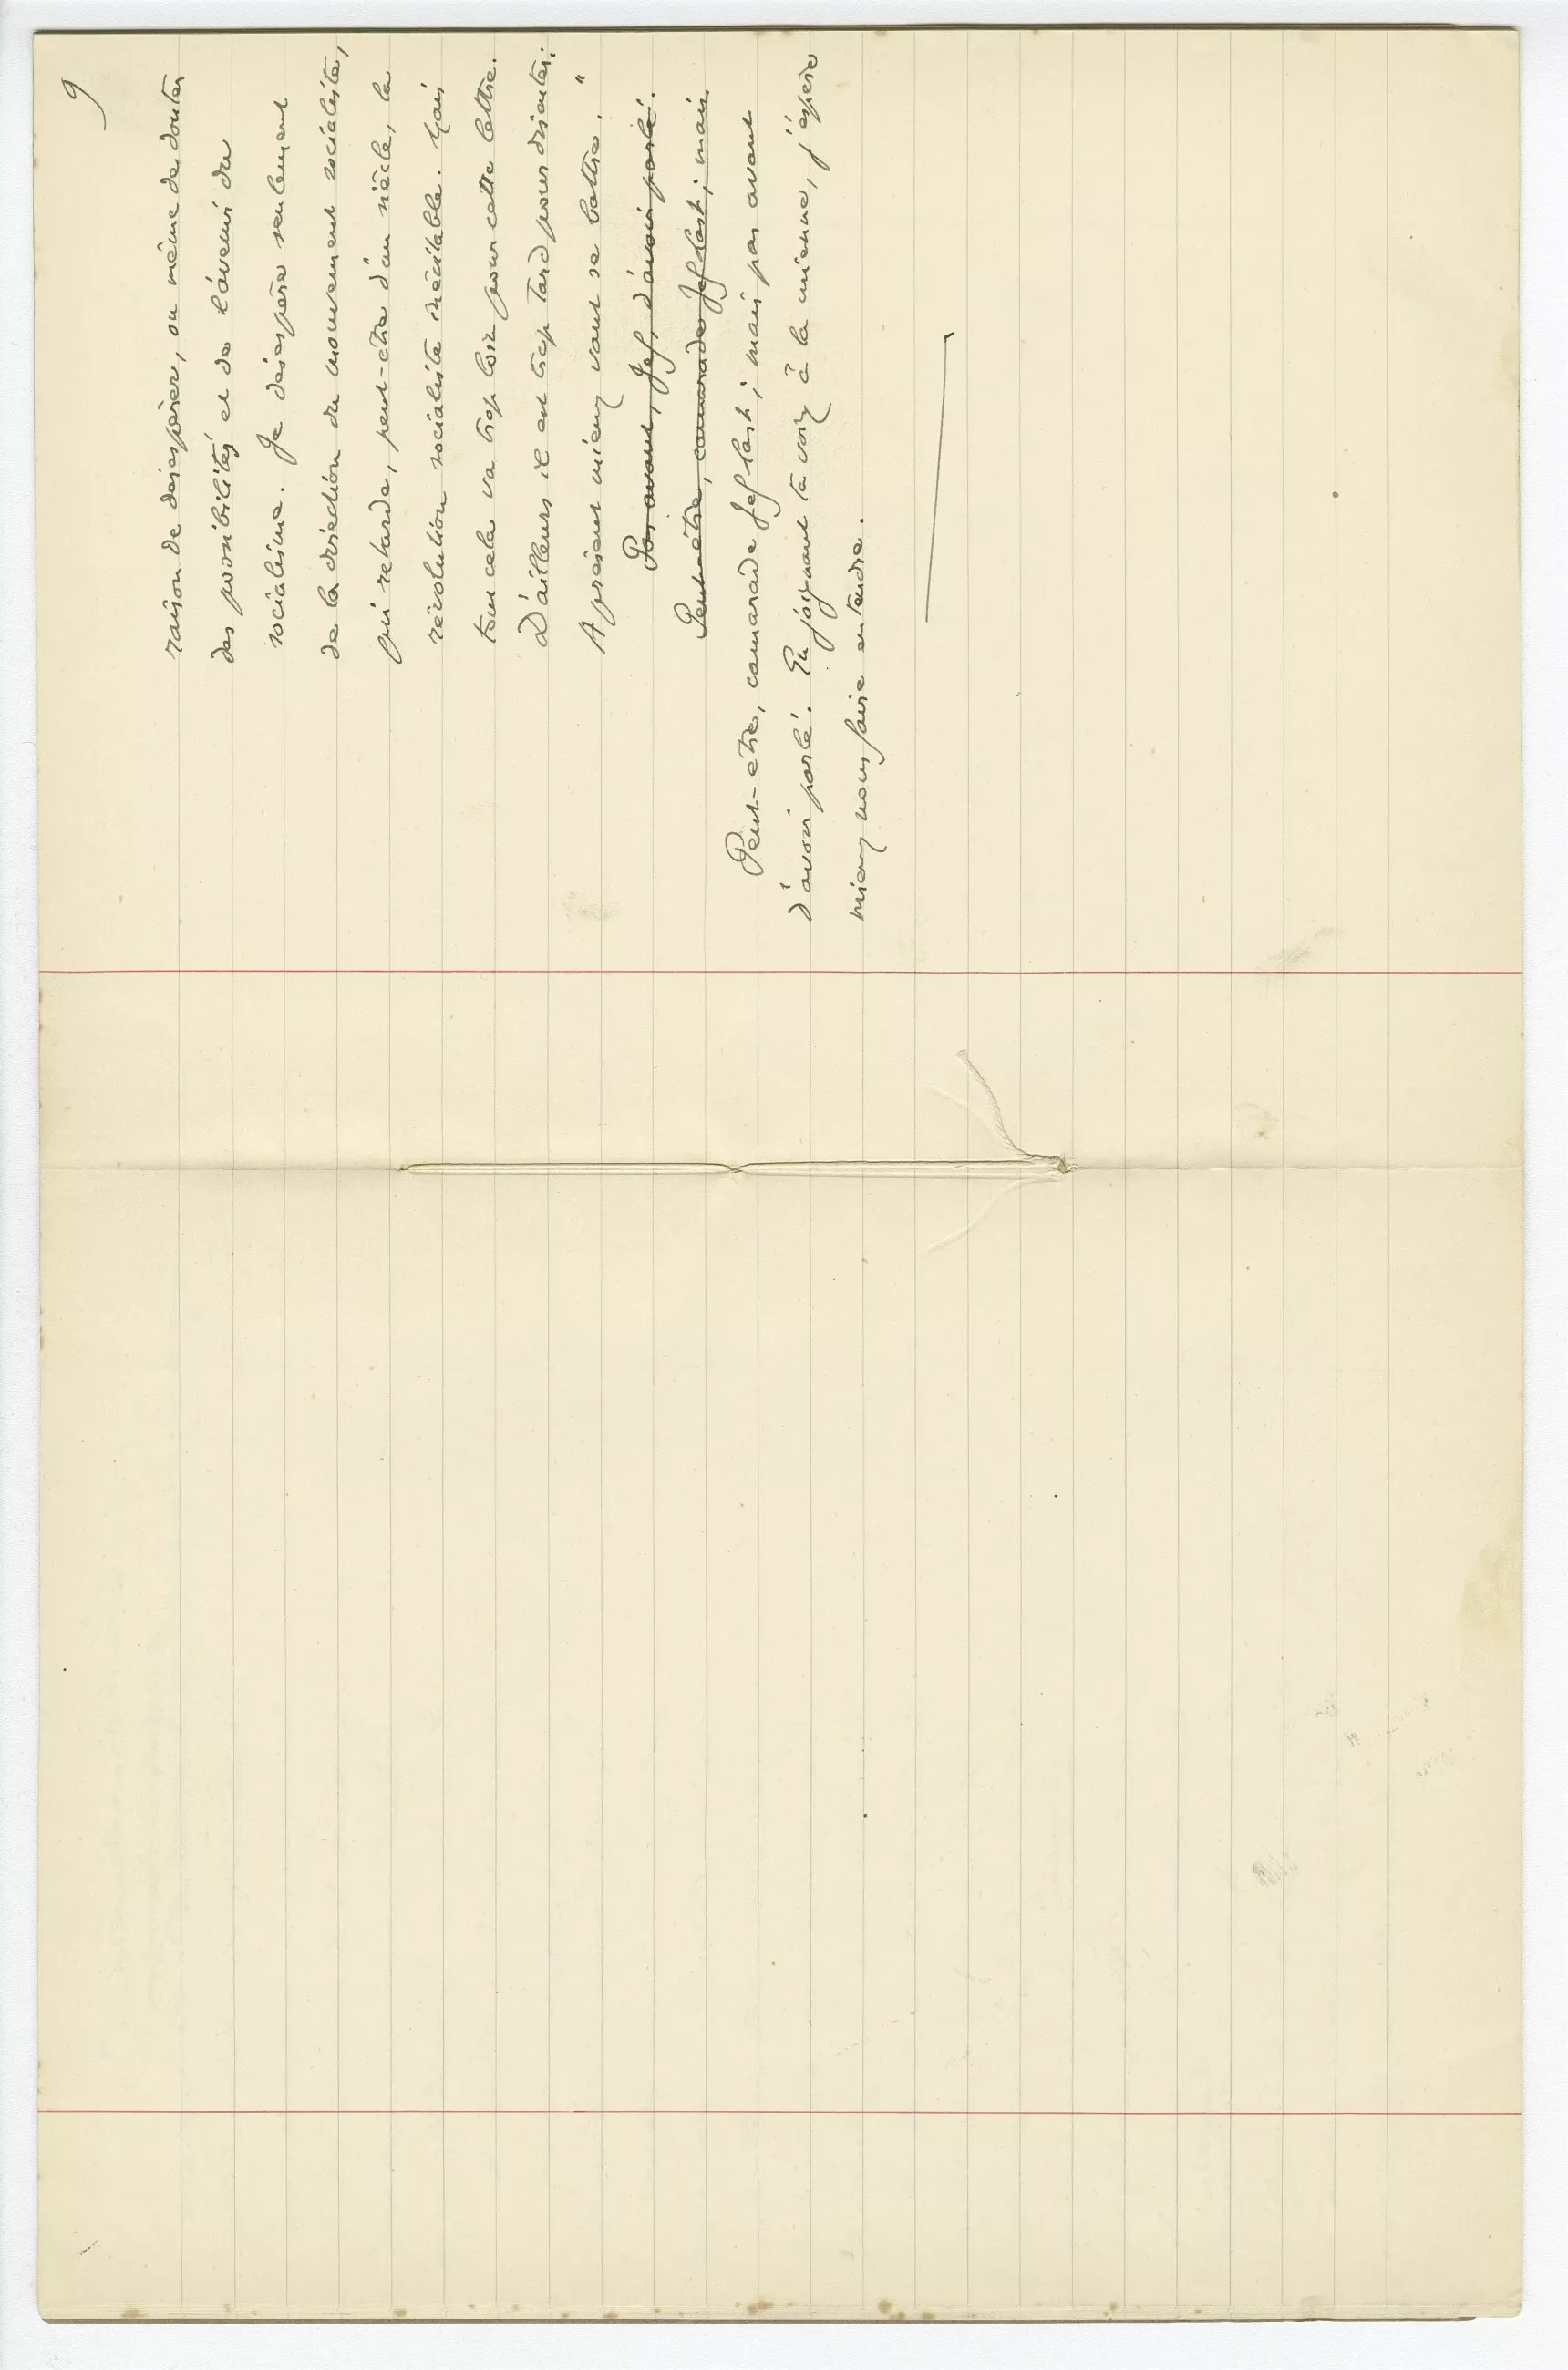 9
raison de désespérer, ou même de douter
des possibilités et de l'avenir du
socialisme. Je désespère seulement
de la direction du mouvement socialiste,
qui retarde, peut-être d'un siècle, la
révolution socialiste inévitable. Mais
tout cela va trop loin pour cette lettre.
D'ailleurs il est trop tard pour discuter.
A présent mieux vaut se battre."
Pas avant, Jef, d'avoir parlé.
Peut-être, camarade Jef Last; mais
Peut-être, camarade Jef Last; mais pas avant
d'avoir parlé. En joignant ta voix à la mienne, j'espère
mieux nous faire entendre.